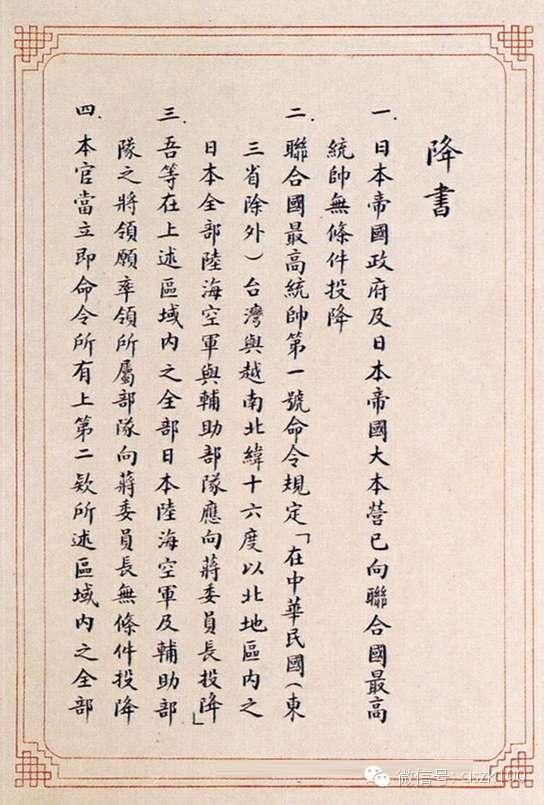 降書
一. 日本帝國政府及日本帝國大本營已向聯合國最高
統帥無條件投降
二. 聯合國最高統帥第一號命令規定「在中華民國(東
三省除外)台灣與越南北緯十六度以北地區內之
日本全部陸海空軍與輔助部隊應向蔣委員長投降」
三. 吾等在上述區域內之全部日本陸海空軍及輔助部
隊之將領願率領所屬部隊向蔣委員長無條件投降
四. 本官當立即命令所有上第二欵所述區域內之全部
微信号: qszk100